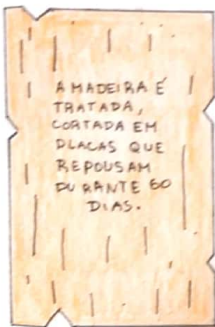 A MADEIRA É
TRATADA,
CORTADA EM
PLACAS QUE
REPOUSAM
DURANTE 60
DIAS.